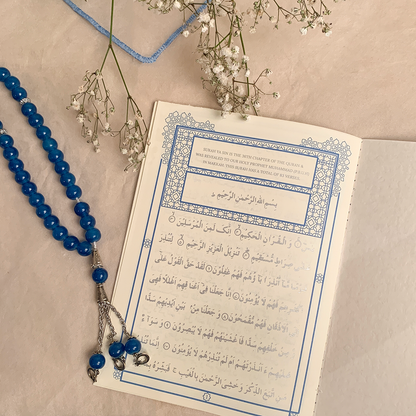 SURAH YA SIN IS THE 36TH CHAPTER OF THE QURAN &
WAS REVEALED TO OUR HOLY PROPHET MUHAMMAD (PBUH)
IN MAKKAH. THIS SURAH HAS A TOTAL OF 83 VERSES.
بِسْمِ اللهِ الرَّحْمٰنِ الرَّحِيْمِ
وَ الْقُرْاٰنِ الْحَكِيْمِ اِنَّكَ لَمِنَ الْمُرْسَلِيْنَ
صِرَاطٍ مُّسْتَقِيْمٍ تَنْزِيْلَ الْعَزِيْزِ الرَّحِيْمِ لِتُنْذِرَ
مَّاۤ اُنْذِرَ اٰبَآؤُهُمْ فَهُمْ غٰفِلُوْنَ لَقَدْ حَقَّ الْقَوْلُ عَلٰۤى
فَهُمْ لَا يُؤْمِنُوْنَ اِنَّا جَعَلْنَا فِيْۤ اَعْنَاقِهِمْ اَغْلٰلًا فَهِيَ
الْاَذْقَانِ فَهُمْ مُّقْمَحُوْنَ وَ جَعَلْنَا مِنْۢ بَيْنِ اَيْدِيْهِمْ سَدًّا
خَلْفِهِمْ سَدًّا فَاَغْشَيْنٰهُمْ فَهُمْ لَا يُبْصِرُوْنَ وَ سَوَآءٌ
ءَاَنْذَرْتَهُمْ اَمْ لَمْ تُنْذِرْهُمْ لَا يُؤْمِنُوْنَ اِنَّمَا تُنْذِرُ
اتَّبَعَ الذِّكْرَ وَ خَشِيَ الرَّحْمٰنَ بِالْغَيْبِ فَبَشِّرْهُ